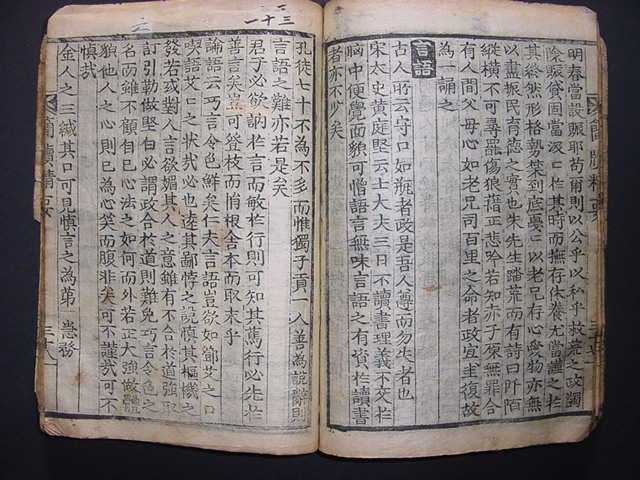 明春當設賑耶苟爾則以公乎以私乎救荒之政蠲
除賑貸固當汲汲於其時而撫存休養尤當謹之於
其終然形格勢禁到底憂憂以老兄存心愛物亦無
以盡振民育德之實也朱先生荒而有詩曰阡陌
縱橫不可尋傷狼藉正悲吟若知赤子原無罪合
有人間父母心如老兄司百里之命者政宜圭復故
為一誦之
言語
古人所云守口如甁者政是吾人尊而勿失者也
宋太史黃庭堅云士大夫三日不讀書理義不交於
胸中便覺面貌可憎語言無味言語之有資於讀書
者亦不少矣
孔徒七十不為不多而惟獨子貢一人善為說辭則
言語之難亦若是矣
君子必欲訥於言而敏於行則可知其篤行必先於
善言矣豈可登枝而悄根舍本而取末乎
論語云巧言令色鮮矣仁夫言語豈欲如鄧艾之口
喫語艾口之狀哉必也遠其鄙悖之說慎其樞機之
發若或對人言欲媚其人之意雖有不合於道強取
討引勒做堅白必謂政合於道則難免巧言令色之
名而雖不顧自己心法之如何而外若正大強做體
貌他人之心則已為心笑而腹非矣可不謹哉可不
慎哉
金人之三緘其口可見慎言之為第一急務
簡牘精要 三十八
三十一